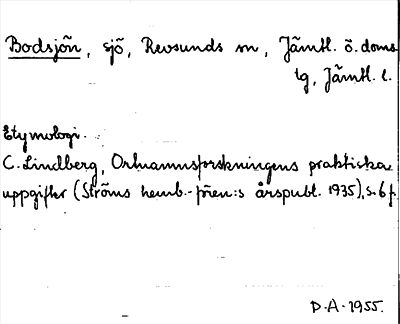 Bodsjön, sjö, Revsunds sn, Jämtl. ö. doms
tg, Jämtl. l.
Etymologi.
C. Lindberg, Ortnamnsforskningens praktiska
uppgifter (Ströms hemb.-fören:s årspubl. 1935), s. 6 f.
D.A. 1955.